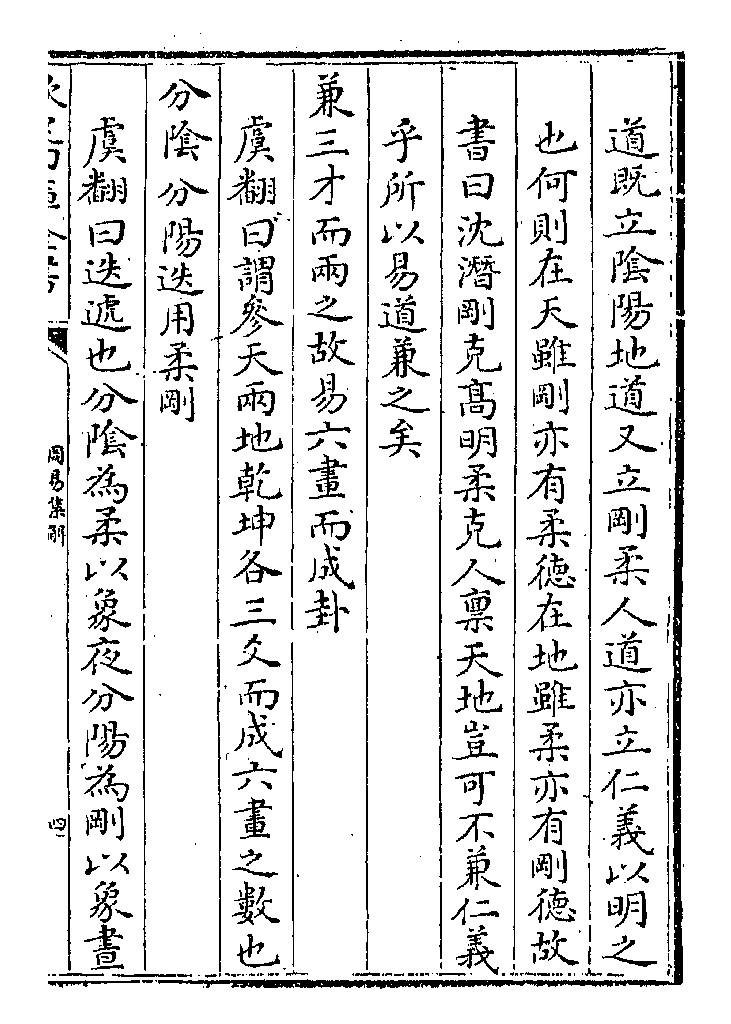 道既立陰陽地道又立剛柔人道亦立仁義以明之
也何則在天雖剛亦有柔德在地雖柔亦有剛德故
書曰沈潛剛克髙明柔克人禀天地豈可不兼仁義
乎所以易道兼之矣
兼三才而兩之故易六畫而成卦
虞翻曰謂參天兩地乾坤各三爻而成六畫之數也
分陰分陽迭用柔剛
虞翻曰迭遞也分陰為柔以象夜分陽為剛以象晝
周易集解
四